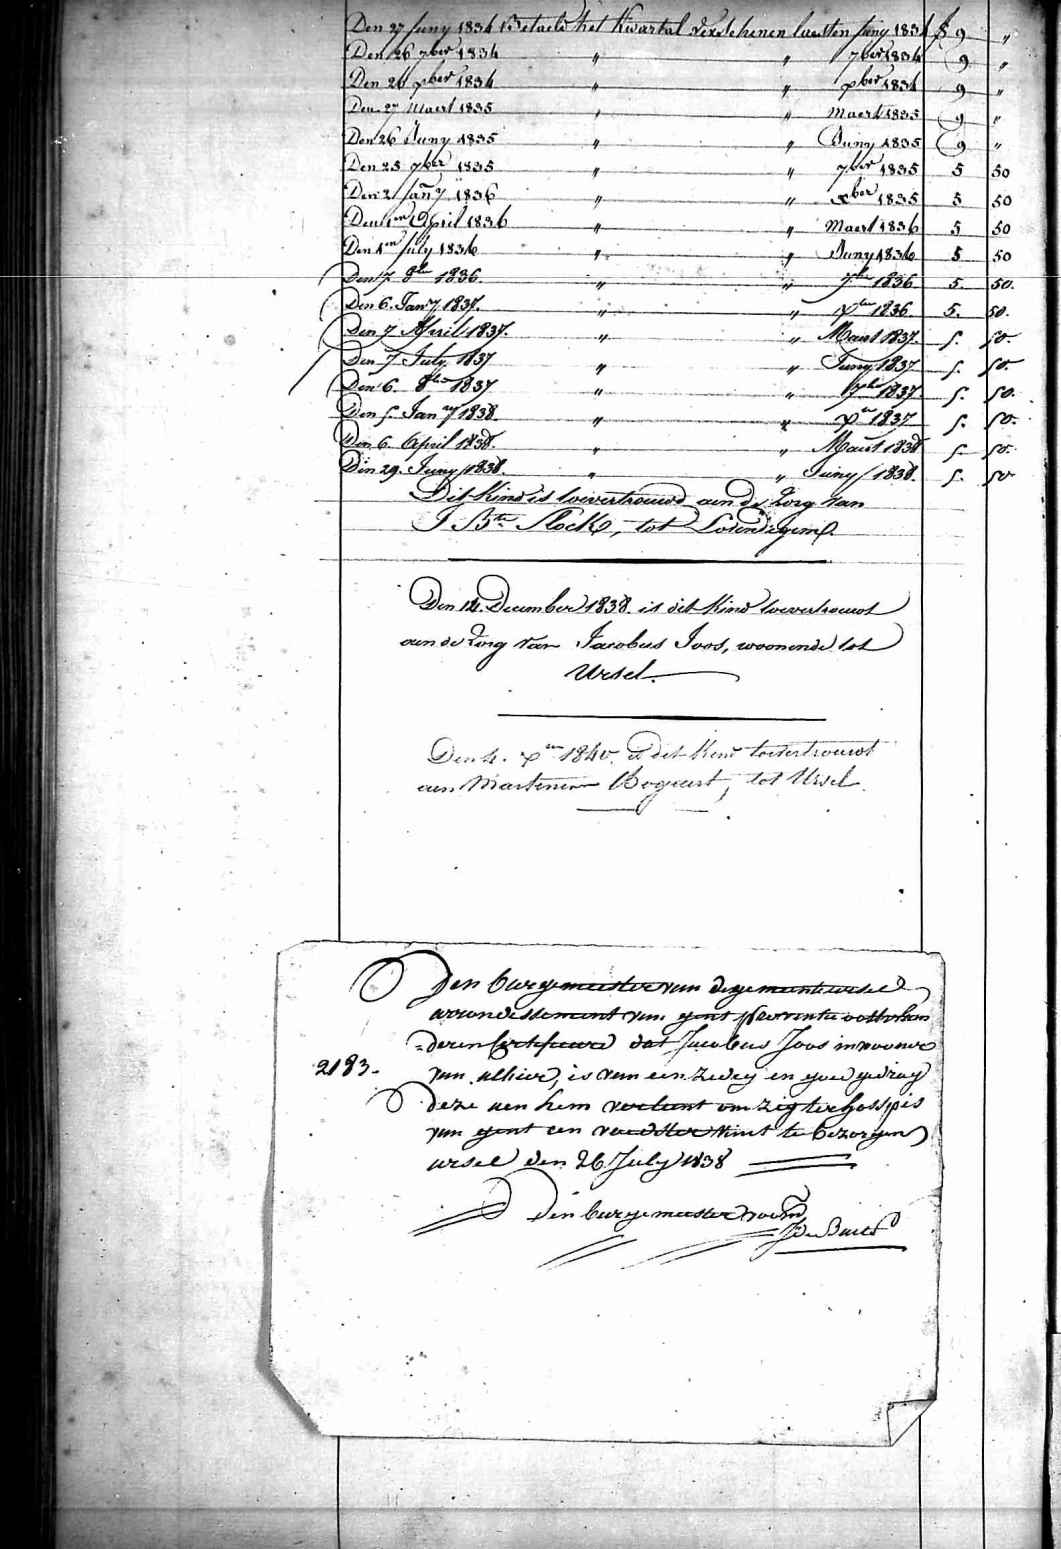 Den 27 Juny 1834 Betaeld het Kwartal verschenen laesten Juny 1834 f 9 "
Den 26 7ber 1834 " " 7ber 1834 9 "
Den 26 xber 1834 " " xber 1834 9 "
Den 27 Maert 1835 " " Maert 1835 9 "
Den 26 Juny 1835 " " Juny 1835 9 "
Den 25 7ber 1835 " " 7ber 1835 5 50
Den 2 Jany 1836 " " xber 1835 5 50
Den 1en April 1836 " " Maert 1836 5 50
Den 1en July 1836 " " Juny 1836 5 50
Den 7 8bre 1836. " " 7bre 1836 5. 50.
Den 6. Jany 1837. " " Xbre 1836. 5. 50.
Den 7 April 1837. " " Maert 1837. 5. 50.
Den 7 July 1837 " " Juny 1837 5. 50.
Den 6. 8bre 1837 " " 7bre 1837 5. 50.
Den 5. Jany 1838. " " Xre 1837 5. 50.
Den 6. April 1838. " " Maert 1838 5. 50.
Den 29. Juny 1838. " " Juny 1838. 5. 50
Dit Kind is toevertrouwd aen de Zorg van
J. Bte Stock, tot Lovendegem.
Den 14. December 1838. is dit Kind toevertrouwt
aen de Zorg van Jacobus Joos, woonende tot
Ursel.
Den 4. Xen 1840. is dit Kind toevertrouwt
aen Martinus Bogaert, tot Ursel.
Den burgemeester van de gemeente ursel
arrondissement van gent provintie oostvlaen
=deren Certifieerd dat Jacobus Joos inwooner
2183.
van alhier, is van een zedig en goed gedrag
deze aen hem verleent om zig ter hosspis
van gent een voedsterkint te bezorgen
ursel den 26 July 1838
Den burgemeester voorn
De Baets